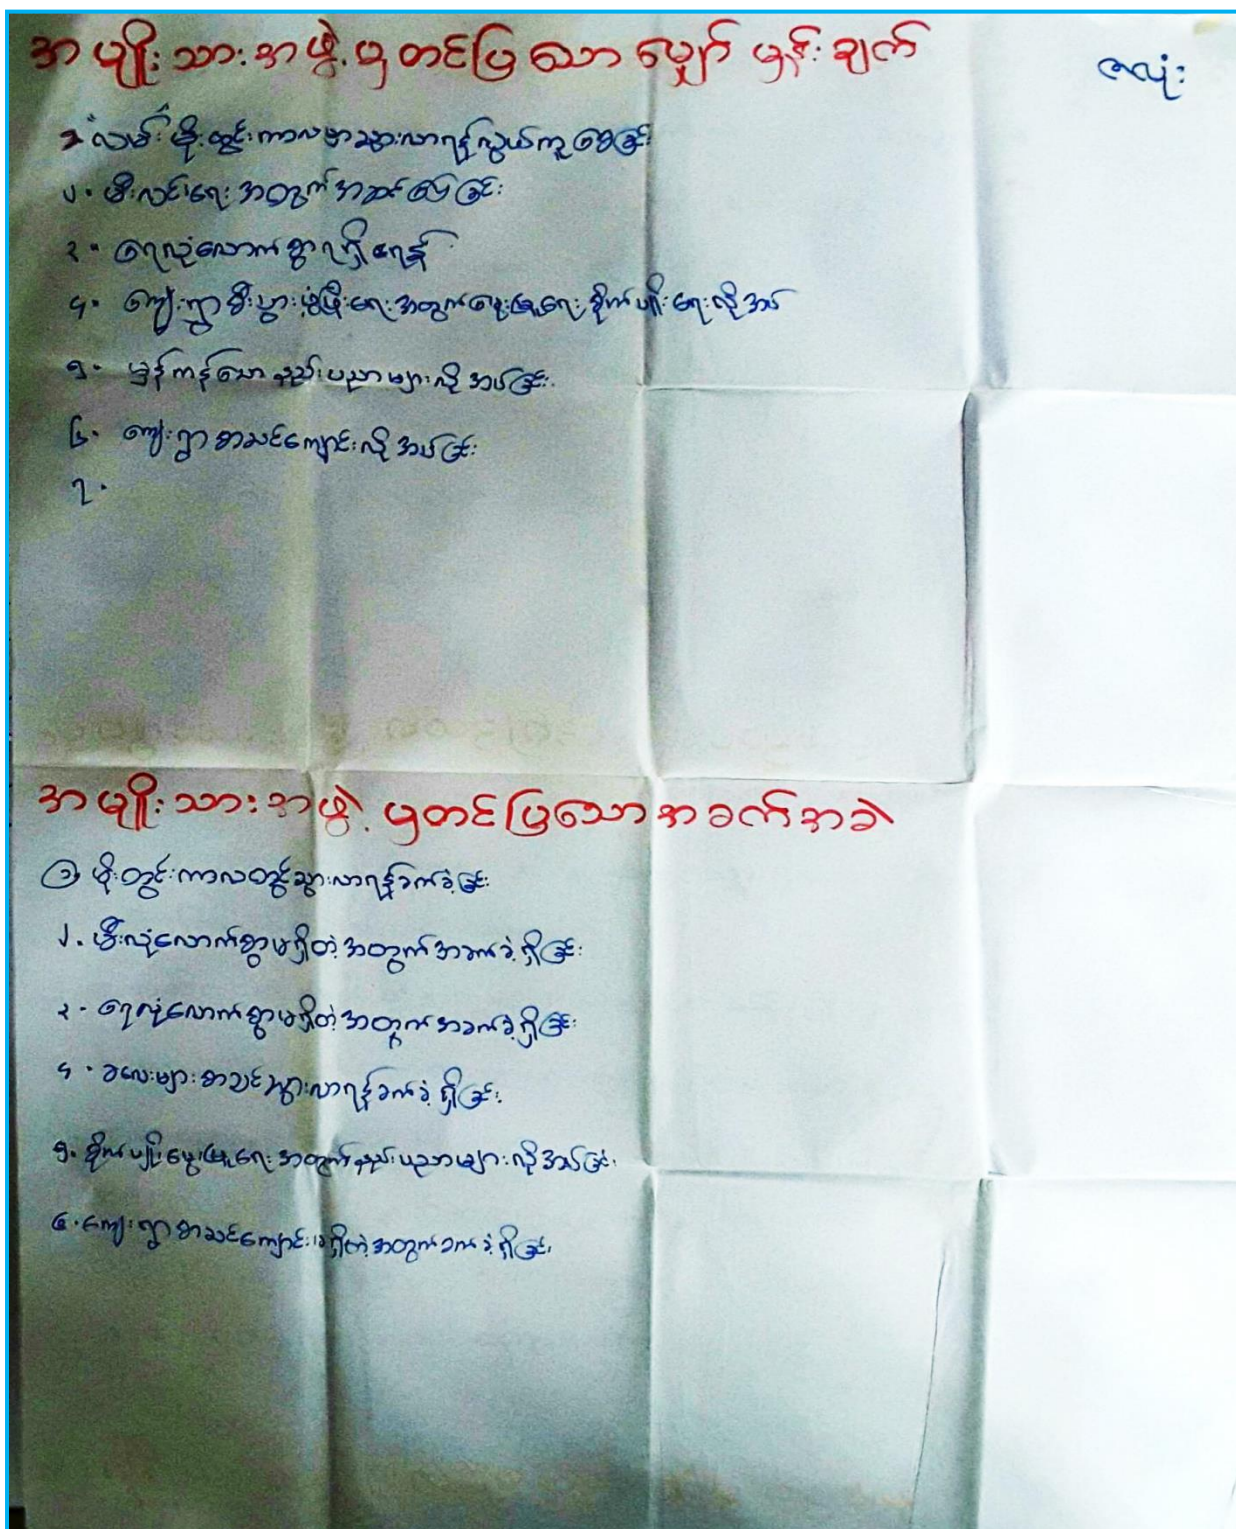 အမျိုးသားအဖွဲ့မှတင်ပြသောမျှော်မှန်းချက်
ဇလုံး
၁။ "လမ်း" မိုးတွင်းကာလမှာသွားလာရန်လွယ်ကူစေခြင်း
၂။ မီးလင်းရေးအတွက်အဆင်ပြေခြင်း
၃။ ရေလုံလောက်စွာရရှိရေးရန်
၄။ ကျေးရွာစီးပွားဖွံ့ဖြိုးရေးအတွက်မွေးမြူရေး,စိုက်ပျိုးရေးလိုအပ်
၅။ မှန်ကန်သောနည်းပညာများလိုအပ်ခြင်း
၆။ ကျေးရွာစာသင်ကျောင်းလိုအပ်ခြင်း
၇။
အမျိုးသားအဖွဲ့မှတင်ပြသောအခက်အခဲ
၁။ မိုးတွင်းကာလတွင်သွားလာရန်ခက်ခဲ့ခြင်း
၂။ မီးလုံလောက်စွာမရှိတဲ့အတွက်အခက်ခဲ့ရှိခြင်း
၃။ ရေလုံလောက်စွာမရှိတဲ့အတွက်အခက်ခဲ့ရှိခြင်း
၄။ ခလေးများစာသင်သွားလာရန်ခက်ခဲ့ရှိခြင်း
၅။ စိုက်ပျိုးမွေးမြူရေးအတွက်နည်းပညာများလိုအပ်ခြင်း
၆။ ကျေးရွာစာသင်ကျောင်းမရှိတဲ့အတွက်ခက်ခဲ့ရှိခြင်း